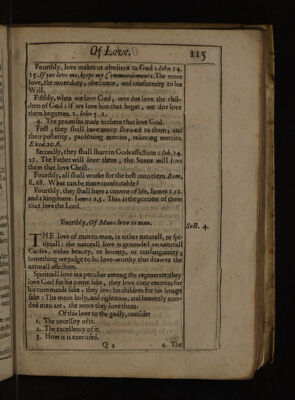 Of Love. 115
Fourthly, love makes us obedient to God: Iohn 14.
15. If yee love me, keepe my Commandements. The more
love, the more duty, obedience, and conformity to his
Will.
Fifthly, when we love God, wee doe love the chil-
dren of God: if we love him that begat, we doe love
them begotten. 1. Iohn 5. 1.
4. The promises made to them that love God.
First, they shall have mercy shewed to them, and
their posterity, pardoning mercies, relieving mercies.
Exod. 20. 6.
Secondly, they shall share in Gods affection: Ioh. 14.
21. The Father will love them, the Sonne will love
them that love Christ.
Fourthly, all shall worke for the best unto them. Rom.
8. 28. What can be more comfortable?
Fourthly, they shall have a crowne of life. Iames 1. 12.
and a kingdome. Iames 2. 5. This is the portion of them
that love the Lord.
Fourthly, Of Mans love to man.
Sect. 4.
THE love of man to man, is either naturall, or spi-
rituall: the naturall love is grounded on naturall
Causes, either beauty, or bounty, or consanguinity;
something we judge to be love-worthy that draweth the
naturall affection.
Spirituall love is a peculiar among the regenerate, they
love God for his owne sake, they love their enemies for
his commands sake, they love his children for his image
sake: The more holy, and righteous, and heavenly min-
ded men are, the more they love them.
Of this love to the godly, consider
1. The necessity of it.
2. The excellency of it.
3. How it is exercised.
Q 2 4. The